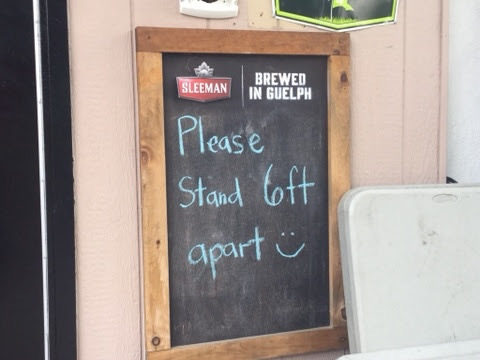 SLEEMAN
BREWED
IN GUELPH
Please
Stand 6ft
apart